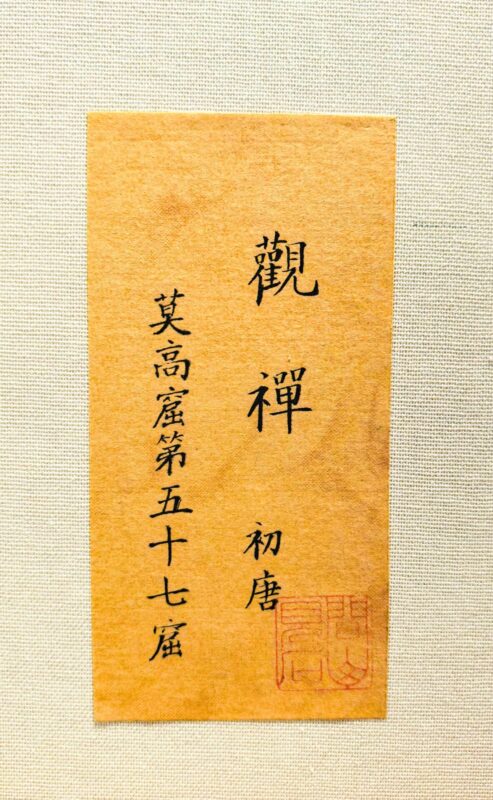 觀禪 初唐
莫高窟第五十七窟